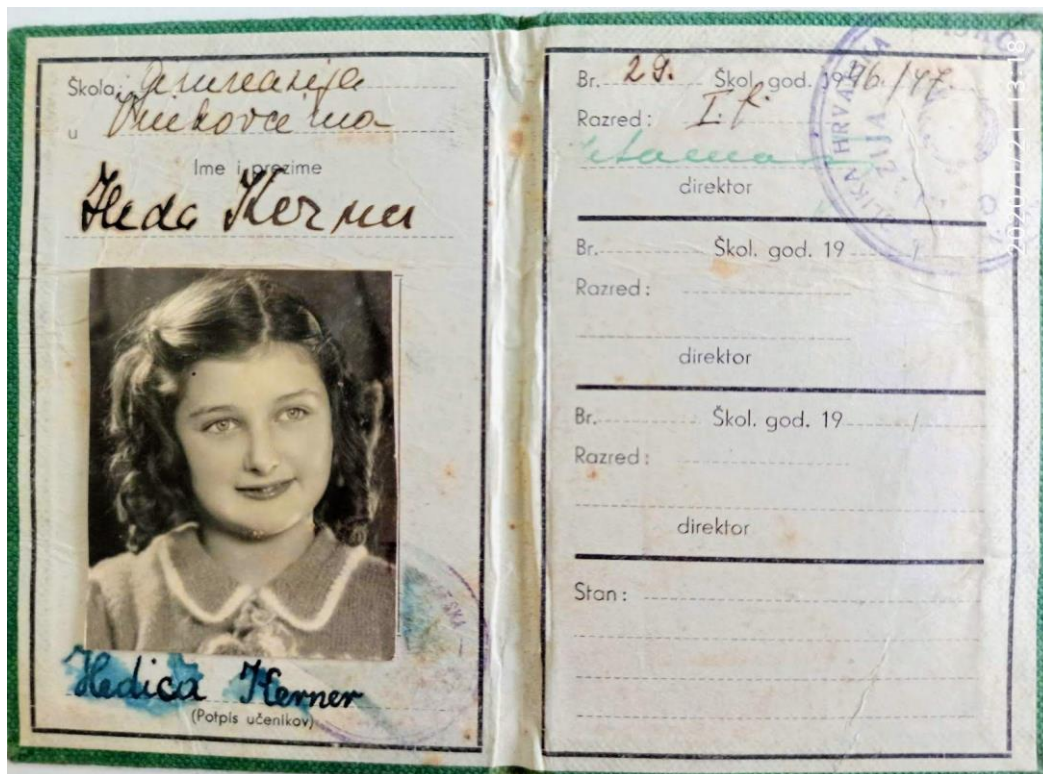 Škola: Gimnazija
u Vinkovcima
Ime i prezime
Heda Kerner
Hedica Kerner
(Potpis učenikov)
Br. 29. Škol. god. 1946./47.
Razred: I.f.
direktor
Br. Škol. god. 19 /
Razred:
direktor
Br. Škol. god. 19 /
Razred:
direktor
Stan:
HRVATSKA
2020/07/21 13:18